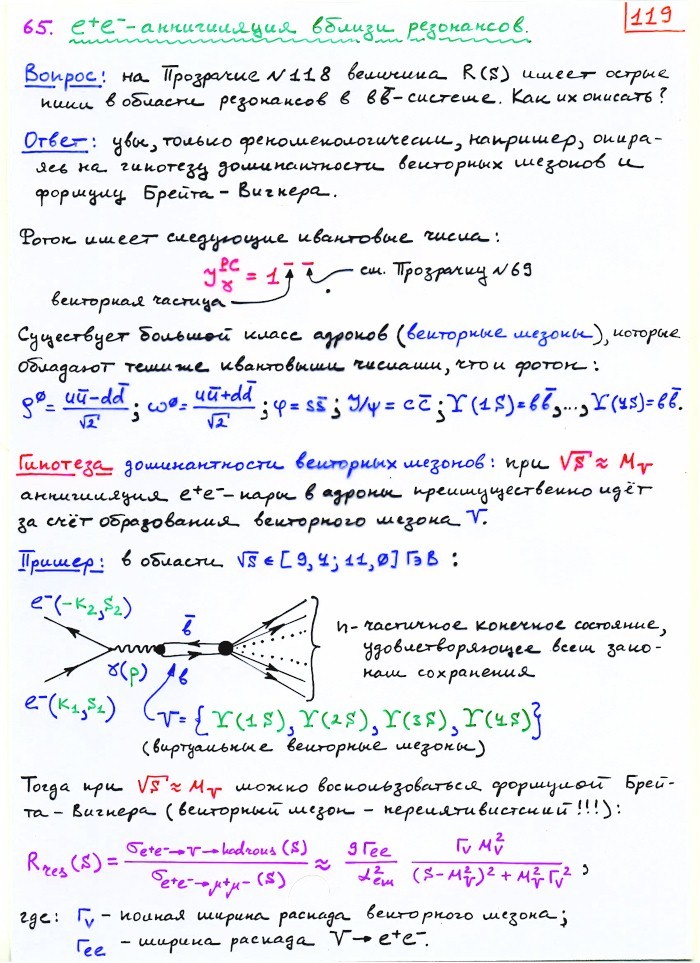 65. e⁺e⁻-аннигиляция вблизи резонансов.
119
Вопрос: на Прозрачке N118 величина R(s) имеет острые
пики в области резонансов в bb̄-системе. Как их описать?
Ответ: увы, только феноменологически, например, опира-
ясь на гипотезу доминантности векторных мезонов и
формулу Брейта-Вигнера.
Фотон имеет следующие квантовые числа:
J_γ^{PC} = 1^{--} см. Прозрачку N69
векторная частица
Существует большой класс адронов (векторные мезоны), которые
обладают теми же квантовыми числами, что и фотон:
ρ⁰ = (uū-dd̄)/√2; ω⁰ = (uū+dd̄)/√2; φ = ss̄; J/ψ = cc̄; Υ(1S)=bb̄,..., Υ(4S)=bb̄.
Гипотеза доминантности векторных мезонов: при √s ≈ M_V
аннигиляция e⁺e⁻-пары в адроны преимущественно идёт
за счёт образования векторного мезона V.
Пример: в области √s ∈ [9,4; 11,0] ГэВ:
e⁻(-k₂,s₂)
b̄
n-частичное конечное состояние,
удовлетворяющее всем зако-
нам сохранения
γ(p)
b
e⁻(k₁,s₁)
V = {Υ(1S), Υ(2S), Υ(3S), Υ(4S)}
(виртуальные векторные мезоны)
Тогда при √s ≈ M_V можно воспользоваться формулой Брей-
та-Вигнера (векторный мезон - нерелятивистский!!!):
R_res(s) = σ_{e⁺e⁻→V→hadrons}(s) / σ_{e⁺e⁻→μ⁺μ⁻}(s) ≈ 9Γ_ee/α²_em · Γ_V M_V² / ((s-M_V²)² + M_V² Γ_V²),
где: Γ_V - полная ширина распада векторного мезона;
Γ_ee - ширина распада V→e⁺e⁻.